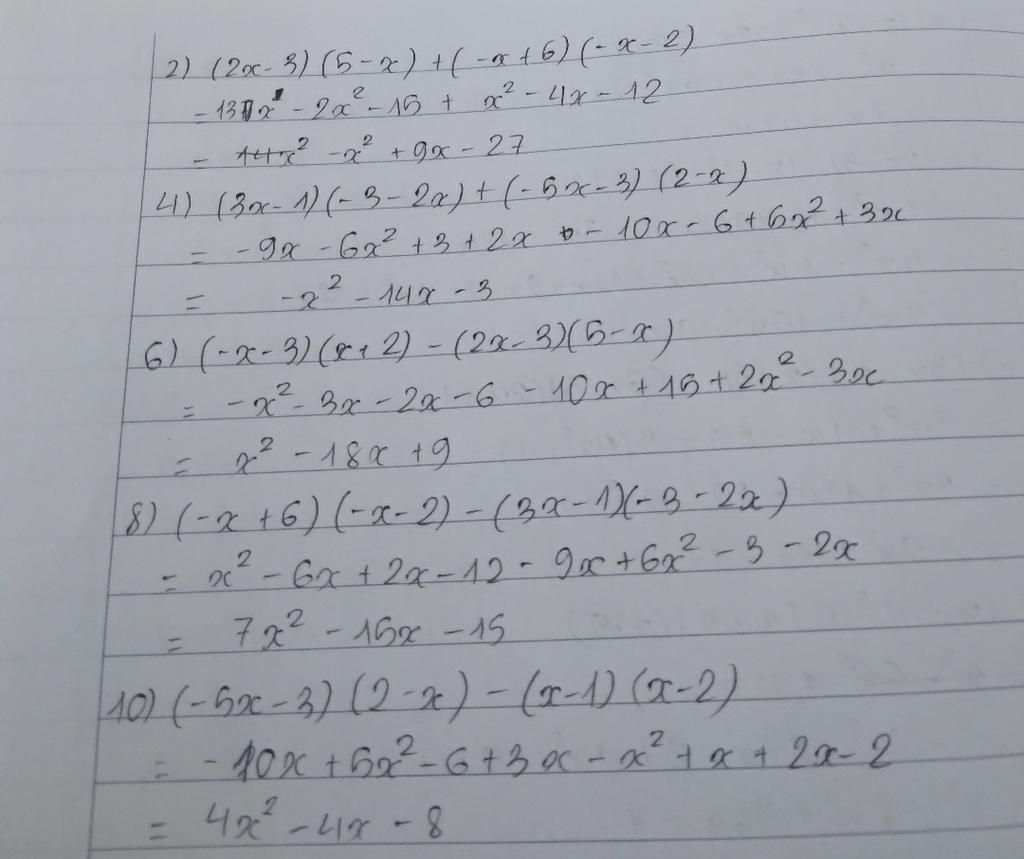 2) (2x-3)(5-x)+(-x+6)(-x-2)
= 13x - 2x² - 15 + x² - 4x - 12
= -x² + 9x - 27
4) (3x-1)(-3-2x)+(-5x-3)(2-x)
= -9x - 6x² + 3 + 2x - 10x - 6 + 5x² + 3x
= -x² - 14x - 3
6) (-x-3)(x+2) - (2x-3)(5-x)
= -x² - 3x - 2x - 6 - 10x + 15 + 2x² - 3x
= x² - 18x + 9
8) (-x+6)(-x-2) - (3x-1)(-3-2x)
= x² - 6x + 2x - 12 - 9x + 6x² - 3 - 2x
= 7x² - 15x - 15
10) (-5x-3)(2-x) - (x-1)(x-2)
= -10x + 5x² - 6 + 3x - x² + x + 2x - 2
= 4x² - 4x - 8